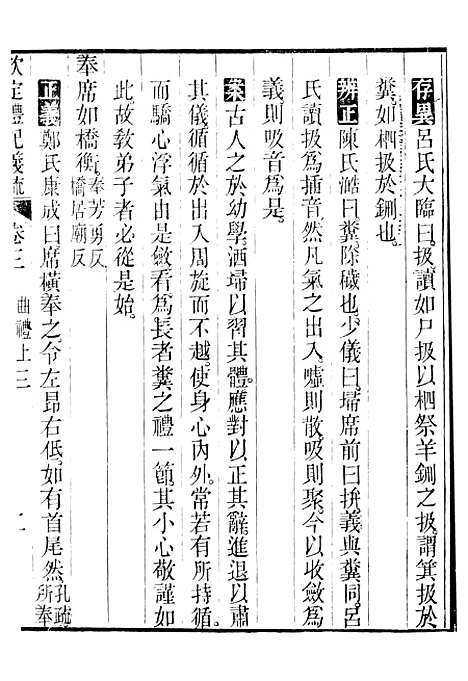 存異呂氏大臨曰扱讀如尸扱以柶祭羊鉶之扱謂箕扱於
糞如柶扱於鉶也
辨正陳氏澔曰糞除穢也少儀曰埽席前曰拚義與糞同呂
氏讀扱為插音然凡氣之出入噓則散吸則聚今以收斂為
義則吸音為是
案古人之於幼學洒埽以習其體應對以正其辭進退以肅
其儀循循於出入周旋而不越使身心內外常若有所持循
而驕心浮氣由是斂看為長者糞之禮一節其小心敬謹如
此故教弟子者必從是始
奉席如橋衡奉芳勇反橋居廟反
正義鄭氏康成曰席橫奉之令左昂右低如有首尾然孔疏所奉
欽定禮記義疏 卷三 曲禮上三